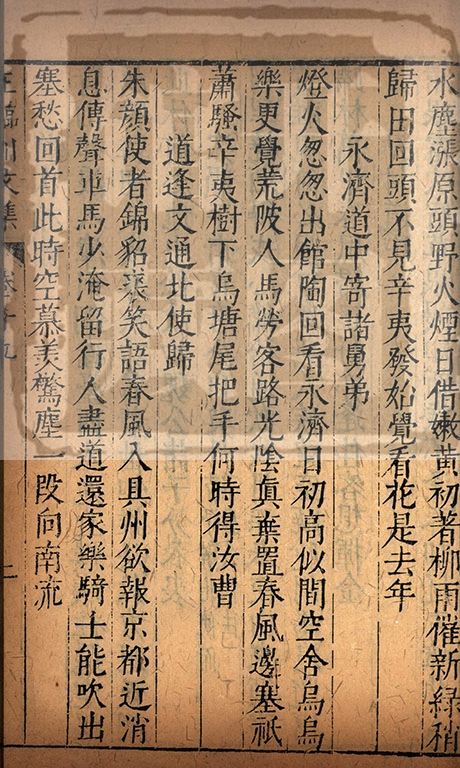 水塵漲原頭野火煙日借嫩黄初著柳雨催新緑稍
歸田回頭不見辛夷發始覺看花是去年
永濟道中寄諸舅弟
燈火怱怱出館陶回看永濟日初高似聞空舍烏烏
樂更覺荒陂人馬勞客路光陰真棄置春風邊塞祗
蕭騷辛夷樹下烏塘尾把手何時得汝曹
道逢文通北使歸
朱顔使者錦貂裘笑語春風入貝州欲報京都近消
息傳聲車馬少淹留行人盡道還家樂騎士能吹出
塞愁回首此時空慕羡驚塵一段向南流
王臨川文集 卷二十九